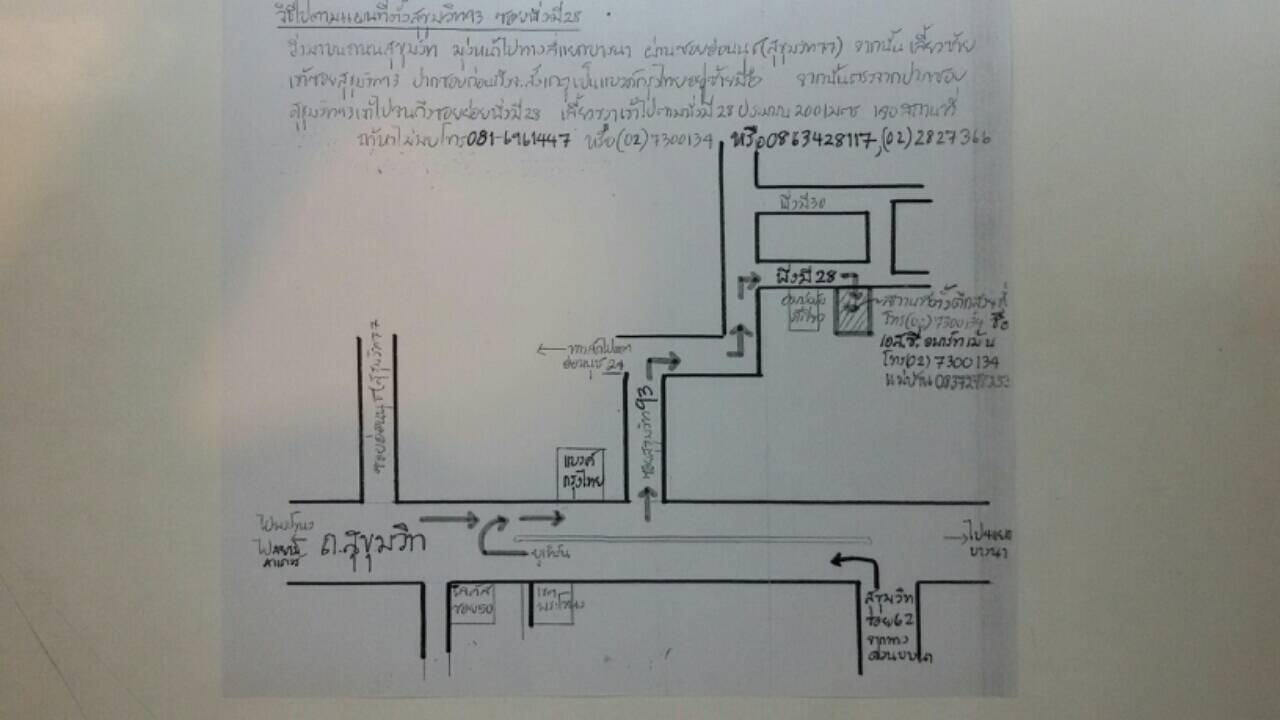 วิธีไปตามแผนที่ตั้งสุขุมวิท93 ซอยพึ่งมี28
วิ่งมาบนถนนสุขุมวิท มุ่งหน้าไปทางสี่แยกบางนา ผ่านซอยอ่อนนุช(สุขุมวิท77) จากนั้นเลี้ยวซ้าย
เข้าซอยสุขุมวิท93 ปากซอยก่อนถึงจะสังเกตุเป็นแบงค์กรุงไทยอยู่ซ้ายมือ จากนั้นตรงจากปากซอย
สุขุมวิท93เข้าไปจนถึงซอยย่อยพึ่งมี28 เลี้ยวขวาเข้าไปตามพึ่งมี28 ประมาณ 200เมตร เจอสถานที่
ถ้าหาไม่พบโทร081-6961447 หรือ(02)7300134 หรือ0863428117,(02)2827366
พึ่งมี30
พึ่งมี28
โทร(02)7300134 ชื่อ
เอส.ซี. อพาร์ทเม้น
โทร(02)7300134
แม่บ้าน
ทางลัดไปออก
อ่อนนุช 24
ซอยอ่อนนุช(สุขุมวิท77
ซอยสุขุมวิท93
แบงค์
กรุงไทย
ถ.สุขุมวิท
ยูเทิร์น
ไปแยก
บางนา
โลตัส
ซอย50
เขต
พระโขนง
สุขุมวิท
ซอย62
จากทาง
ด่วน